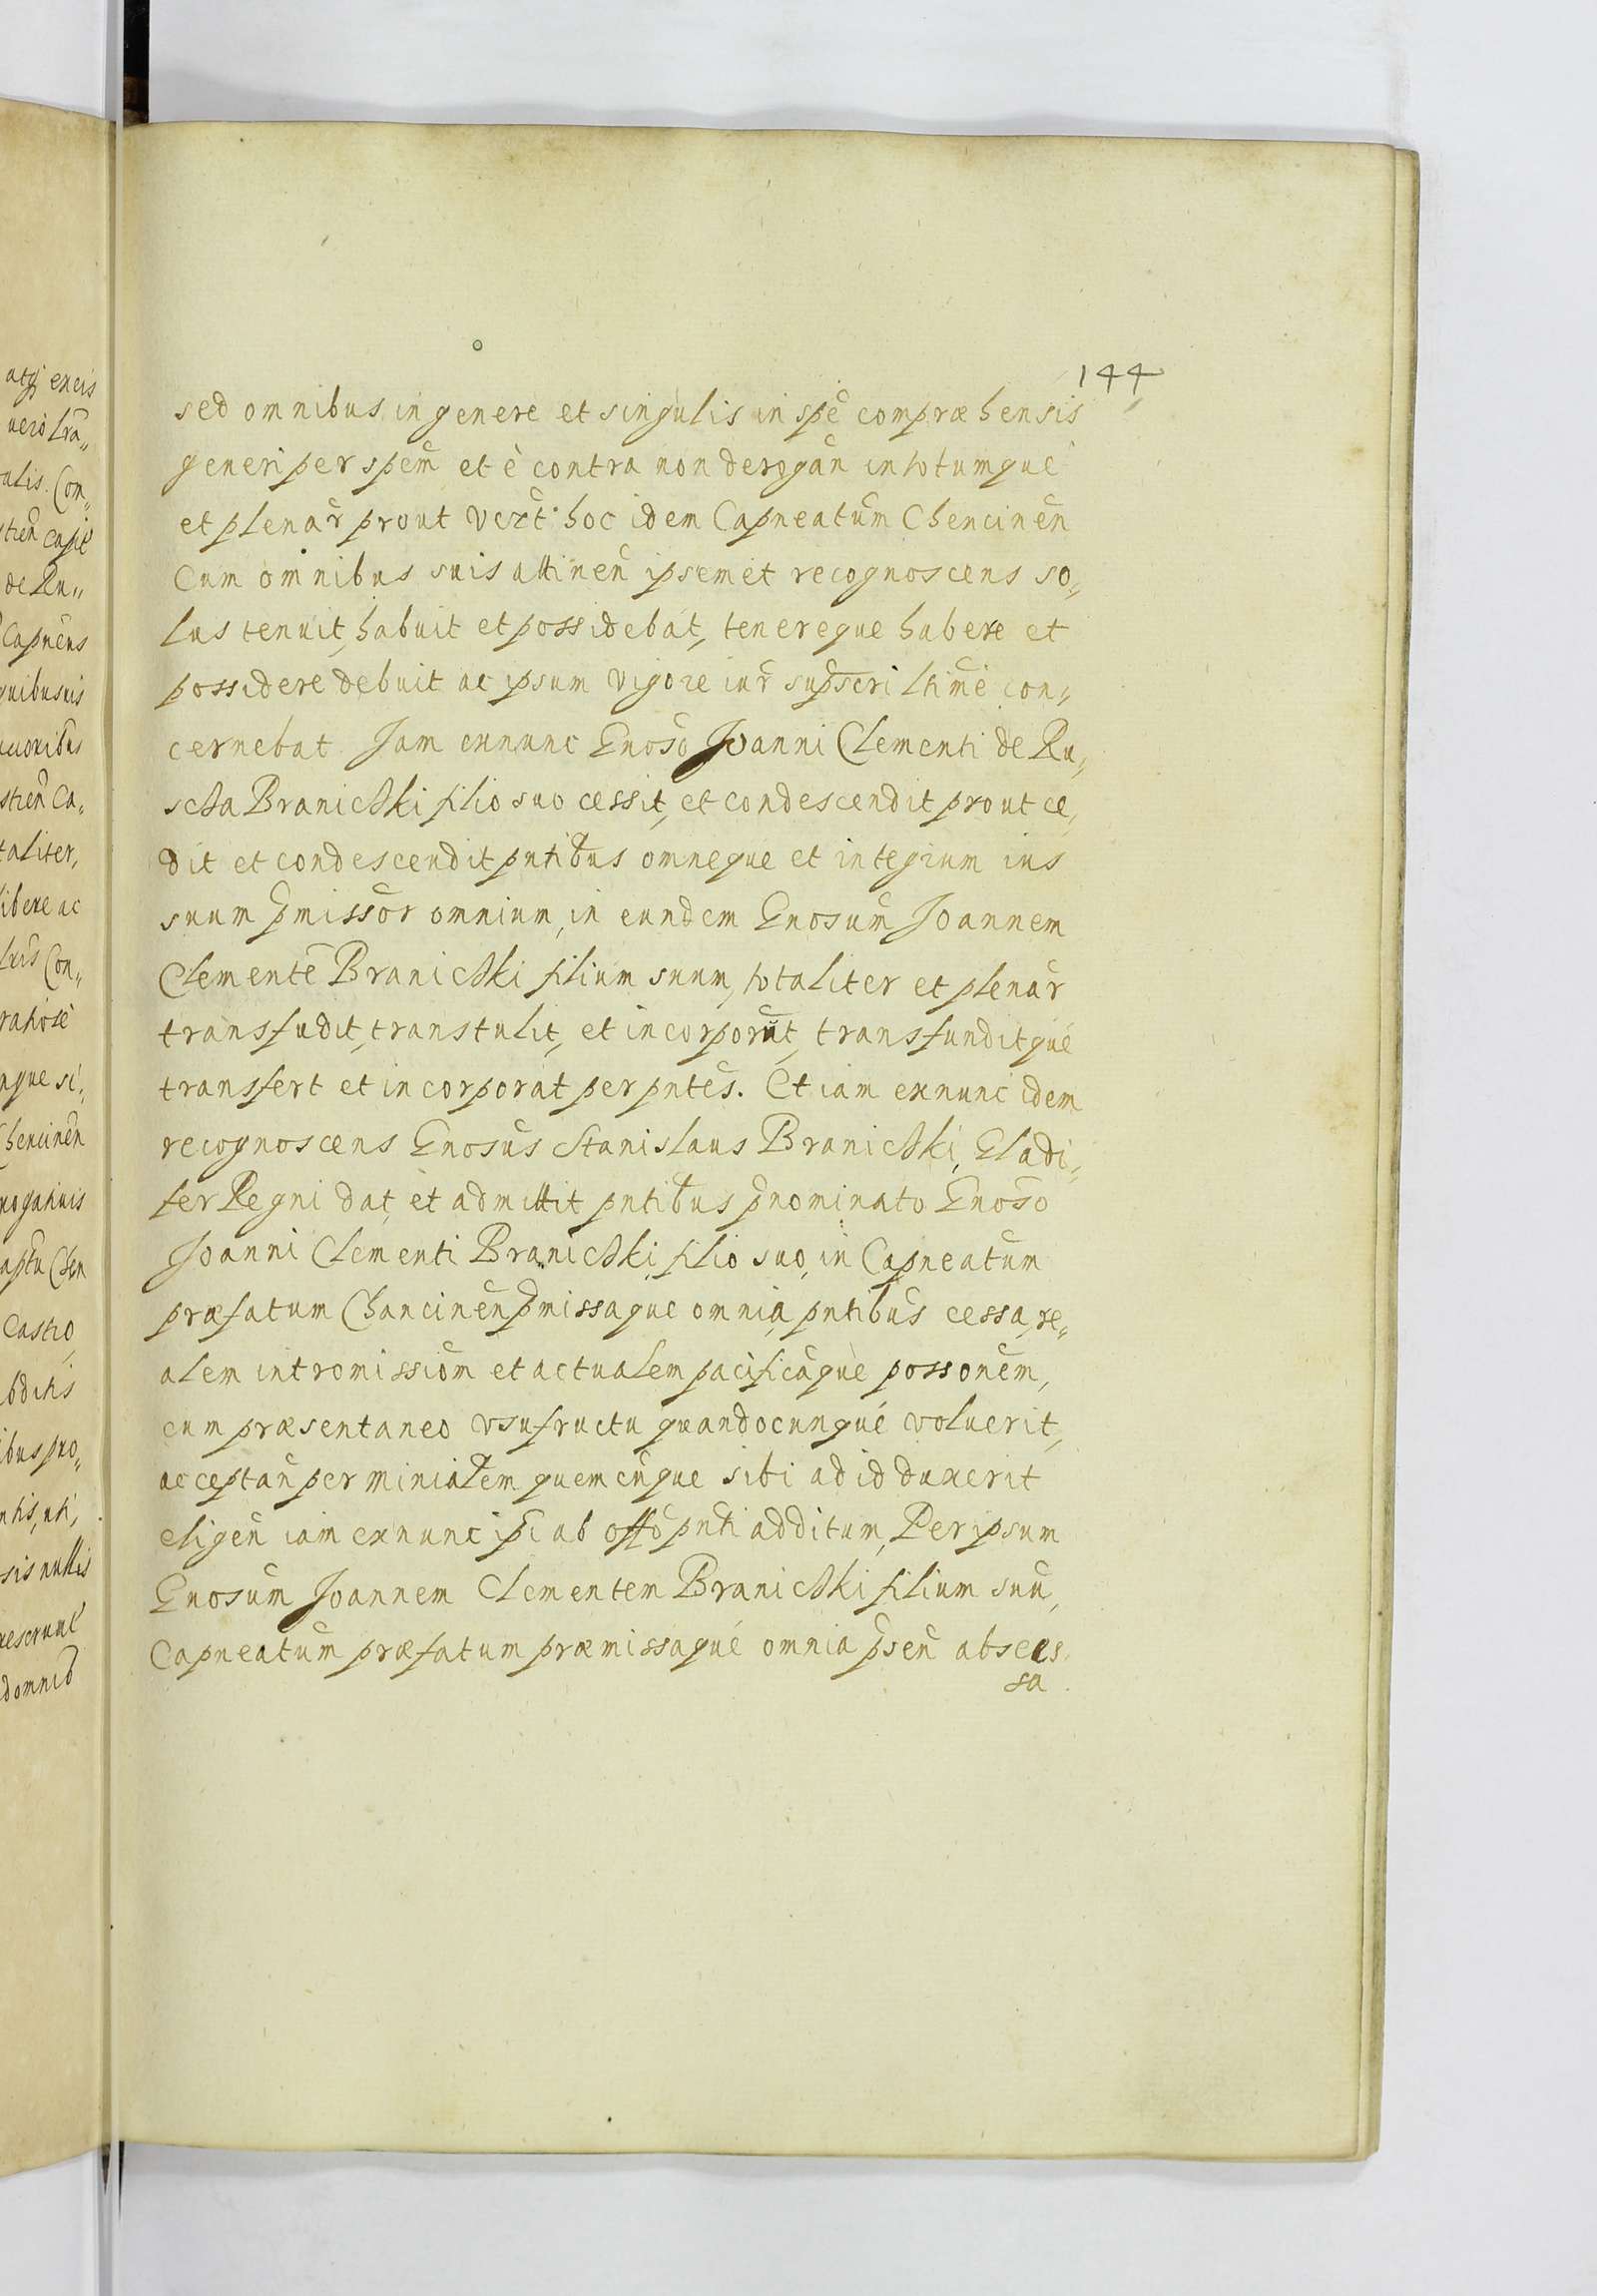 144
sed omnibus in genere et singulis in spē compræhensis
generi per spem̄ et è contra non derogan̄ in totumque
et plenar̄ prout vcxt̄ hoc idem Capneatum̄ Chencinen̄
Cum omnibus suis attinen̄ ipsemet recognoscens so„
lus tenuit, habuit et possidebat, tenereque habere et
possidere debuit ac ipsum vigore iur̄ sup̄scri ltimē con„
cernebat Jam exnunc Gnoso Joanni Clementi de Ru„
scza Braniczki filio suo cessit, et condescendit prout ce„
dit et condescendit pntibus omneque et integrum ius
suum p̄missor̄ omnium, in eundem Gnosum̄ Joannem
Clementē Braniczki filium suum, totaliter et plenar̄
transfudit, transtulit, et incorporūt, transfunditque
transfert et incorporat per pntes̄. Et iam exnunc idem
recognoscens Gnosus̄ Stanislaus Braniczki, Gladi„
fer Regni dat, et admittit pntibus p̄nominato Gnoso
Joanni Clementi Braniczki, filio suo, in Capneatum̄
præfatum Chancinen̄ p̄missaque omnia, pntibus̄ cessa, re„
alem intromissiom̄ et actualem pacificāque possonem̄,
cum præsentaneo vsufructu quandocunque voluerit,
acceptan̄ per minialem quemcūque sibi ad id duxerit
eligen̄ iam exnunc ip̄i ab offō pnti additum, Per ipsum
Gnosum Joannem Clementem Braniczki filium suū,
Capneatum̄ præfatum præmissaque omnia p̄sen̄ abscess„
sa

atq; excis
vero lrā„
ulis. Com„
stien̄ capit̄
de Ru„
Capnēus
quibusuis
uuoribus
stien̄ Ca„
taliter,
libere ac
Con„
ratiose
nque si„
Chencinen̄
rogatiuis
aptū Chen
Castro,
ubditis
ibus pro„
ntis, uti,
sis nullis
reserunt
domnib